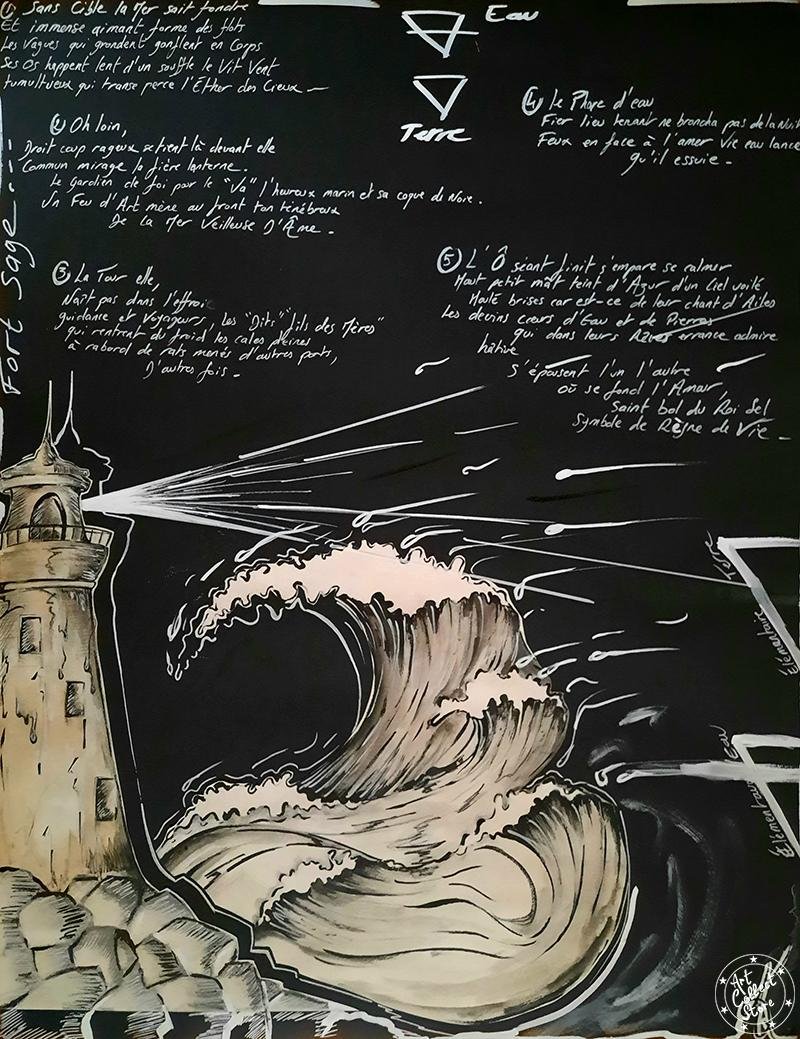 ① Sans Cible la Mer sait fondre
Et immense aimant forme des flots
Les Vagues qui grondent gonflent en Corps
Ses Os happent lent d'un souffle le Vit Vent
tumultueux qui transe perce l'Ether des Cieux —
Eau
Terre
② Oh loin,
Droit coup rageux se tient là devant elle
Commun mirage la fière lanterne.
Le Gardien de foi pour le "Va" l'heureux marin et sa coque de Noie.
Un Feu d'Art mène au front ton ténébreux
De la Mer Veilleuse D'Âme -
③ La Tour elle,
Naît pas dans l'effroi
guidance et Voyageurs, les "Dits" "fils des Mères"
qui rentrent du froid les cales pleines
à rabord de rats menés d'autres ports,
D'autres fois -
④ Le Phare d'eau
Fier lieu tenant ne broncha pas de la Nuit
Feux en face à l'amer Vie eau lance
qu'il essuie -
⑤ L'Ô séant finit s'empare se calmer
Haut petit mât teint d'Azur d'un Ciel voilé
Haulé brises car est-ce de leur chant d'Ailes
Les devins cœurs d'Eau et de Pierres
qui dans leurs errance admire
hâtive
S'épousent l'un l'autre
où se fond l'Amar,
Saint bol du Roi Sel
Symbole de Règne de Vie -
Fort Sage
Terre
Élémentaire
Eau
Élémentaire
Art
Collect
Store